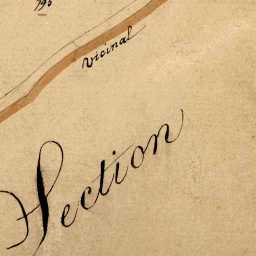 vicinal
Section